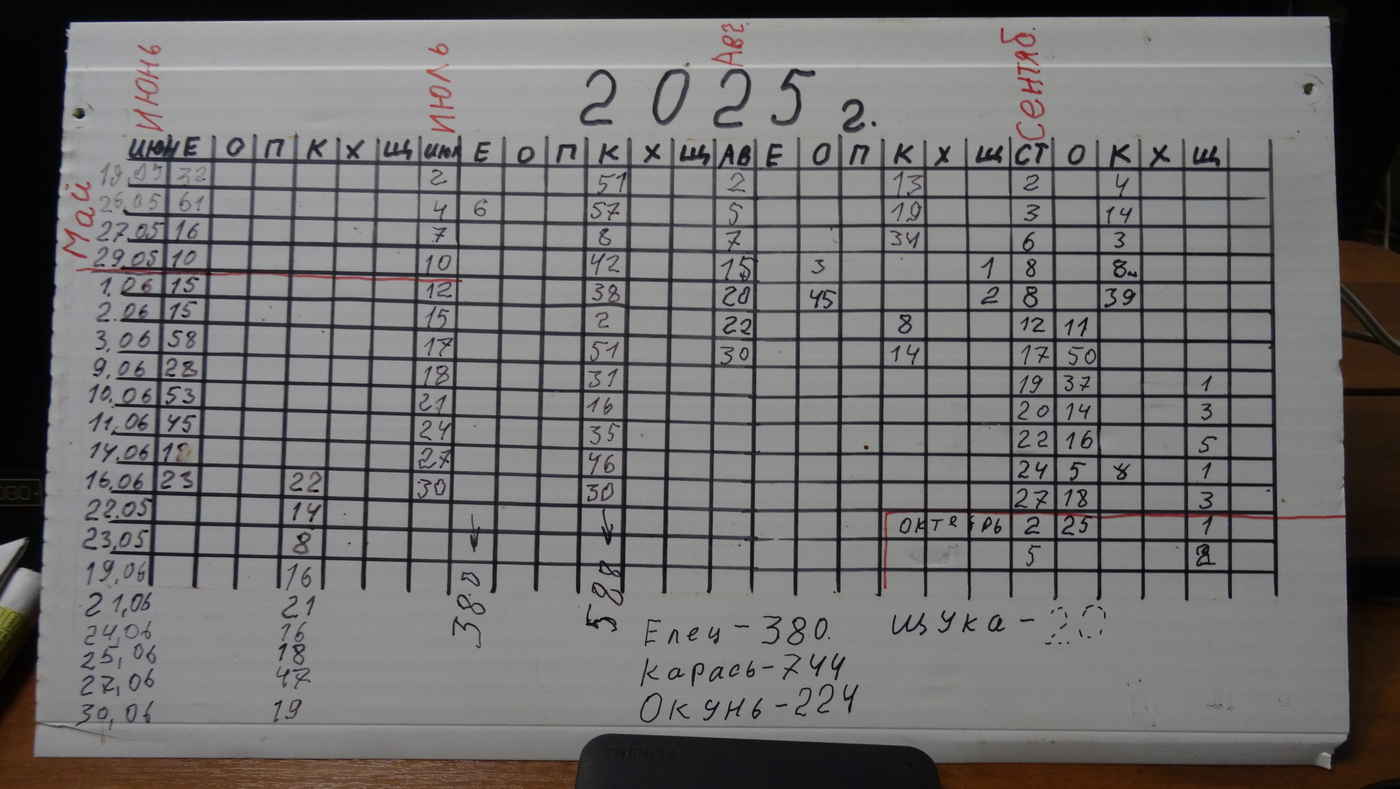 Июнь Июль Авг. Сентяб.
2025 г.
ИЮН Е О П К Х Щ ИЮЛ Е О П К Х Щ АВ Е О П К Х Щ СТ О К Х Щ
Май
19.05 32 2 51 2 13 2 4
26.05 61 4 6 57 5 19 3 14
27.05 16 7 8 7 34 6 3
29.05 10 10 42 15 3 1 8 8
1.06 15 12 38 20 45 2 8 39
2.06 15 15 2 22 8 12 11
3.06 58 17 51 30 14 17 50
9.06 28 18 31 19 37 1
10.06 53 21 16 20 14 3
11.06 45 24 35 22 16 5
14.06 27 46 24 5 8 1
16.06 23 22 30 30 27 18 3
22.05 14 октябрь 2 25 1
23.05 8 5
19.06 16
21.06 21
24.06 16
25.06 18
27.06 47
30.06 19
380 588
Елец-380. щука-20
Карась-744
Окунь-224